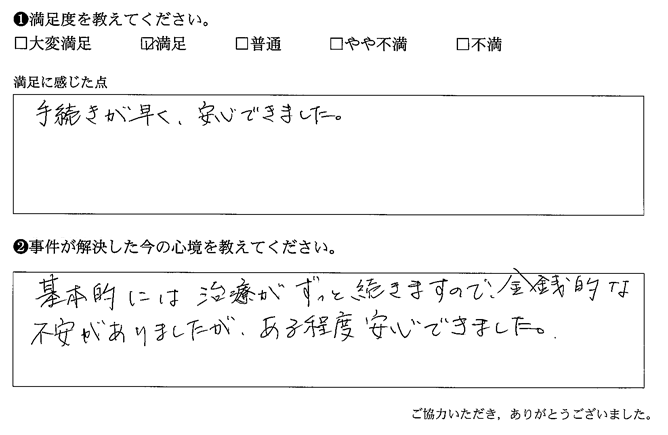 ❶満足度を教えてください。
☐大変満足 ☑満足 ☐普通 ☐やや不満 ☐不満
満足に感じた点
手続きが早く、安心できました。
❷事件が解決した今の心境を教えてください。
基本的には治療がずっと続きますので、金銭的な
不安がありましたが、ある程度安心できました。
ご協力いただき，ありがとうございました。